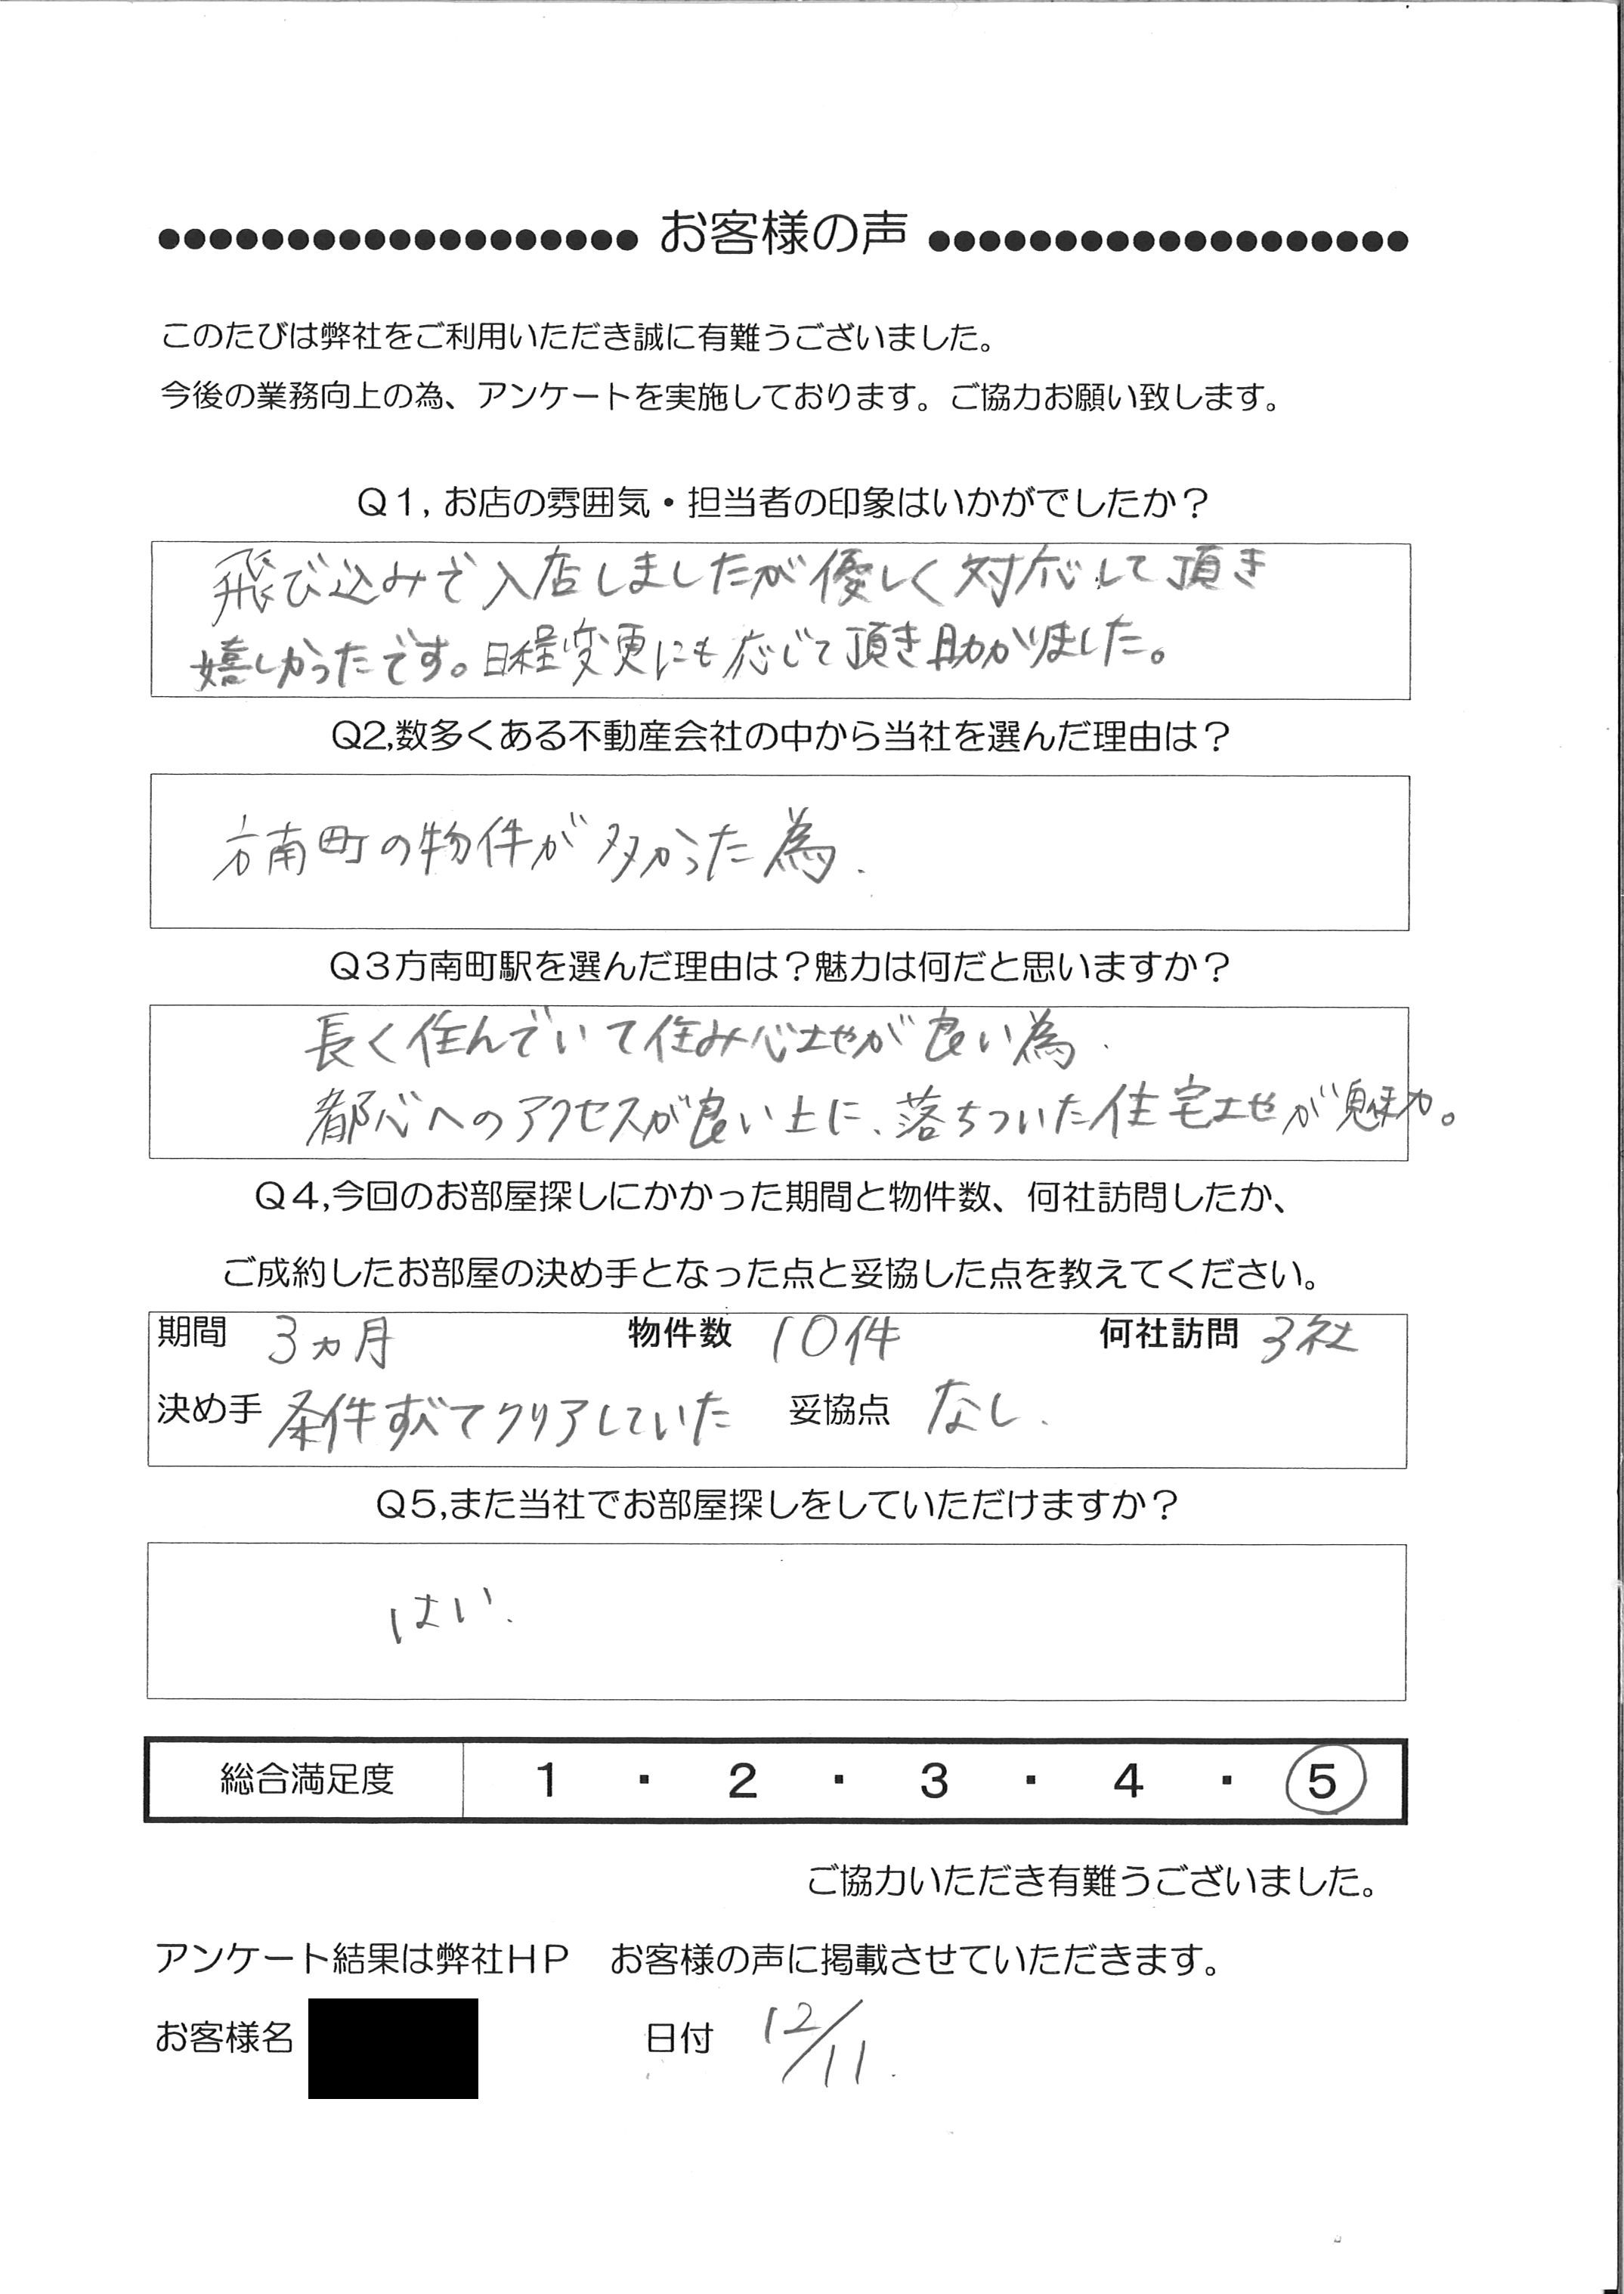 ●●●●●●●●●●●●●●●●●●● お客様の声 ●●●●●●●●●●●●●●●●●●●
このたびは弊社をご利用いただき誠に有難うございました。
今後の業務向上の為、アンケートを実施しております。ご協力お願い致します。
Q1, お店の雰囲気・担当者の印象はいかがでしたか？
飛び込みで入店しましたが優しく対応して頂き
嬉しかったです。日程変更にも応じて頂き助かりました。
Q2,数多くある不動産会社の中から当社を選んだ理由は？
方南町の物件が多かった為.
Q3方南町駅を選んだ理由は？魅力は何だと思いますか？
長く住んでいて住み心地が良い為.
都心へのアクセスが良い上に、落ちついた住宅地が魅力。
Q4,今回のお部屋探しにかかった期間と物件数、何社訪問したか、
ご成約したお部屋の決め手となった点と妥協した点を教えてください。
期間 3ヵ月 物件数 10件 何社訪問 3社
決め手 条件すべてクリアしていた 妥協点 なし.
Q5,また当社でお部屋探しをしていただけますか？
はい.
総合満足度 1 ・ 2 ・ 3 ・ 4 ・ 5
ご協力いただき有難うございました。
アンケート結果は弊社HP　お客様の声に掲載させていただきます。
お客様名 日付 12/11.